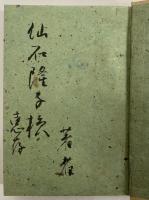 仙石隆子様
惠存
著者